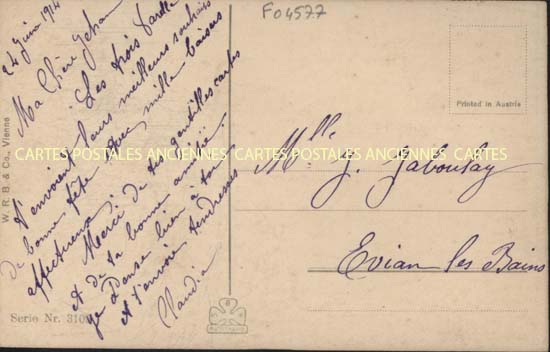 24 juin 1914
Ma Chère Jehanne
Les trois
t'envoient leurs meilleurs souhaits
de bonne fête avec mille baisers
affectueux
Merci de tes gentilles cartes
et de ta bonne amitié
je Pense bien à toi
et t'envoie tendresses
Claudia
W. R. B. & Co., Vienne
Serie Nr. 310
F04577
Printed in Austria
Mlle J. Gaboulay
Evian les Bains
CARTES POSTALES ANCIENNES CARTES POSTALES ANCIENNES CARTES